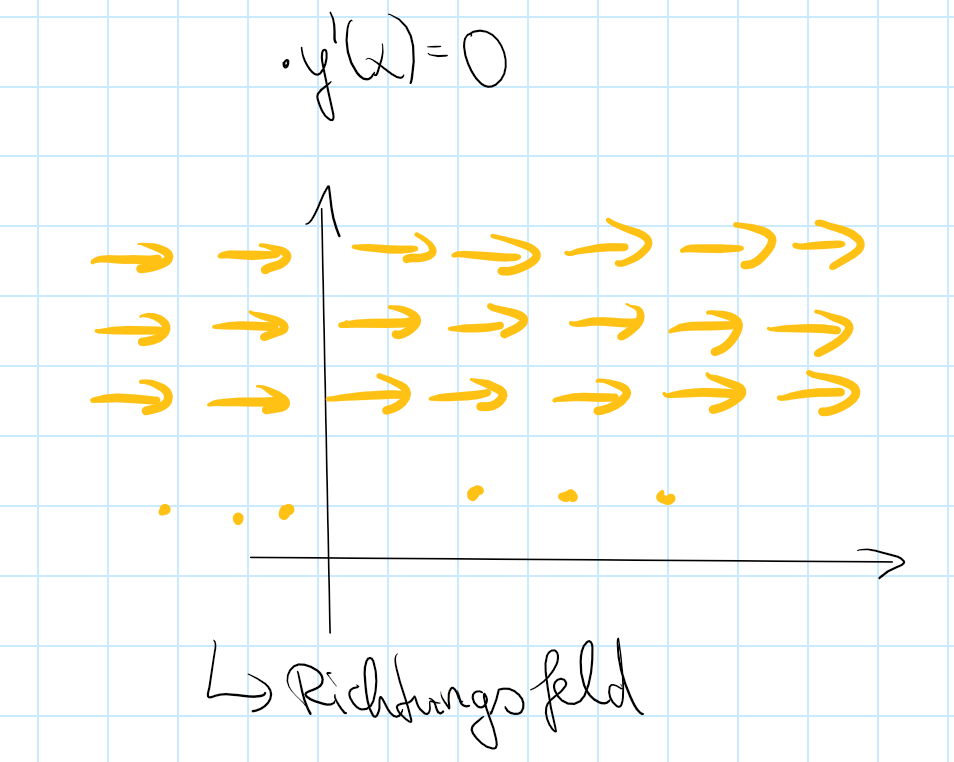 · y'(x) = 0
↳ Richtungsfeld